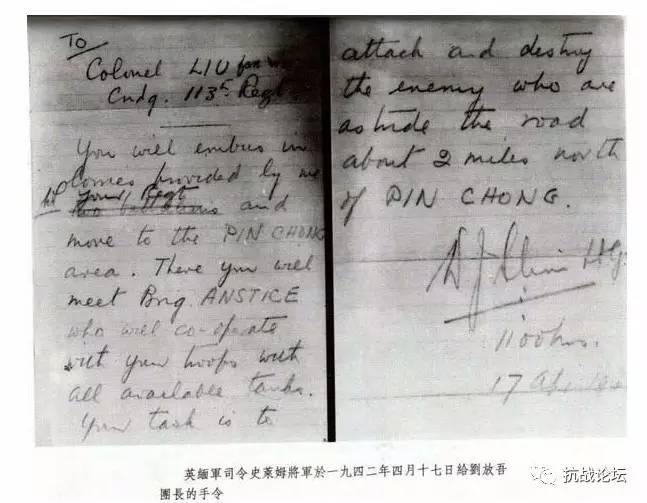 TO
Colonel LIU fan wu
Cndg. 113th Regt.
You will embus in
lorries provided by me
your Regt
two battalions and
move to the PIN CHONG
area. There you will
meet Brig. ANSTICE
who will co-operate
with your troops with
all available tanks.
Your task is to
attack and destroy
the enemy who are
astride the road
about 2 miles north
of PIN CHONG.
1100 hrs.
17 Apr.
英緬軍司令史萊姆將軍於一九四二年四月十七日給劉放吾
團長的手令
抗战论坛